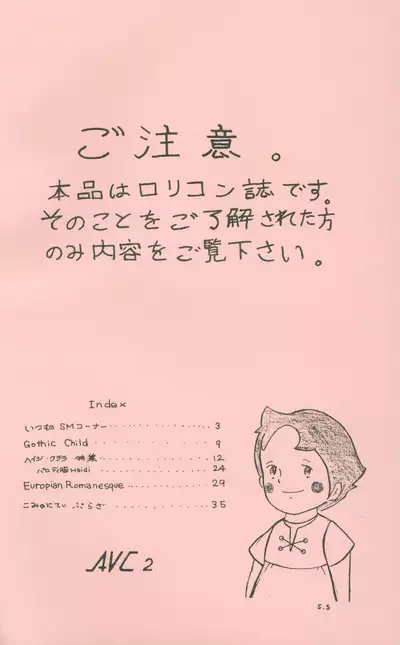 ご注意。
本品はロリコン誌です。
そのことをご了解された方
のみ内容をご覧下さい。
Index
いつもの SMコーナー 3
Gothic Child 9
ハイジ・クララ 特集 12
パロディ版Heidi 24
Europian Romanesque 29
こみゅにてぃ ぷらざ 35
AVC 2
S.S